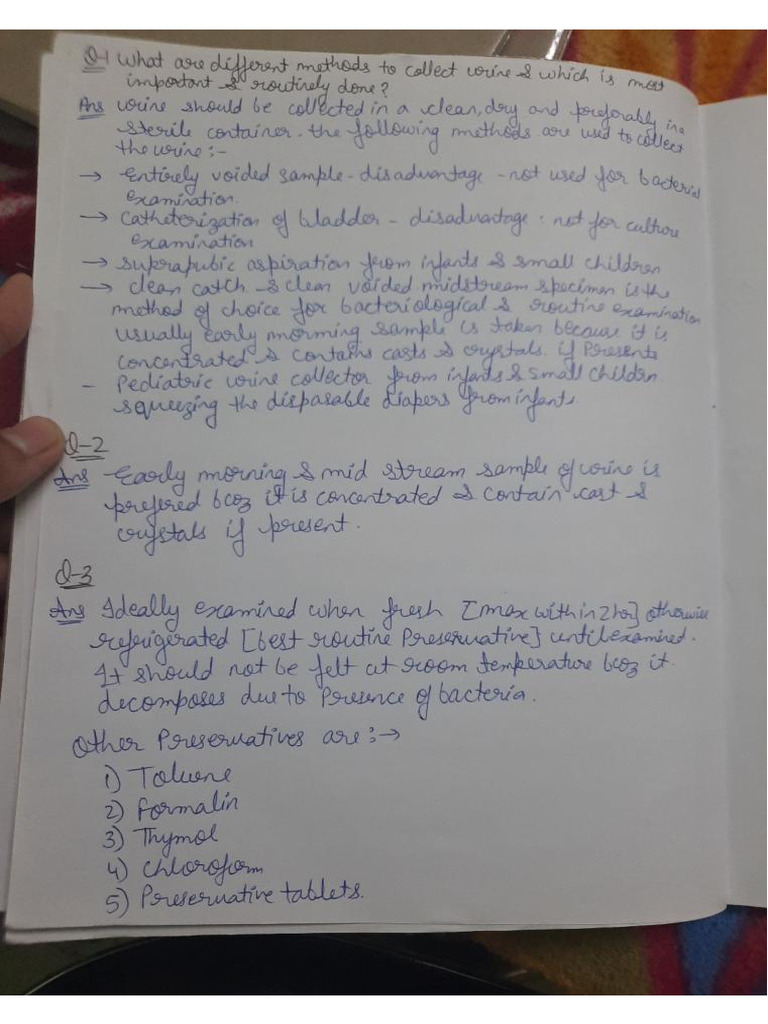 Q-1 What are different methods to collect urine & which is most
important & routinely done?
Ans Urine should be collected in a clean, dry and preferably in a
sterile container. the following methods are used to collect
the urine :-
→ Entirely voided sample - disadvantage - not used for bacterial
examination.
→ Catheterization of bladder - disadvantage. not for culture
examination
→ Suprapubic aspiration from infants & small children
→ clean catch & clean voided midstream specimen is the
method of choice for bacteriological & routine examination
usually early morning sample is taken because it is
concentrated & contains casts & crystals. if Presents
- Pediatric urine collector from infants & small childrn.
squeezing the disposable diapers from infants
Q-2
Ans Early morning & mid stream sample of urine is
prefered bcoz it is concentrated & contain cast &
crystals if present.
Q-3
Ans Ideally examined when fresh [max within 2 hr] otherwise
refrigerated [best routine Preservative] until examined.
It should not be felt at room temperature bcoz it
decomposes due to Presence of bacteria.
Other Preservatives are :→
1) Toluene
2) Formalin
3) Thymol
4) Chloroform
5) Preservative tablets.